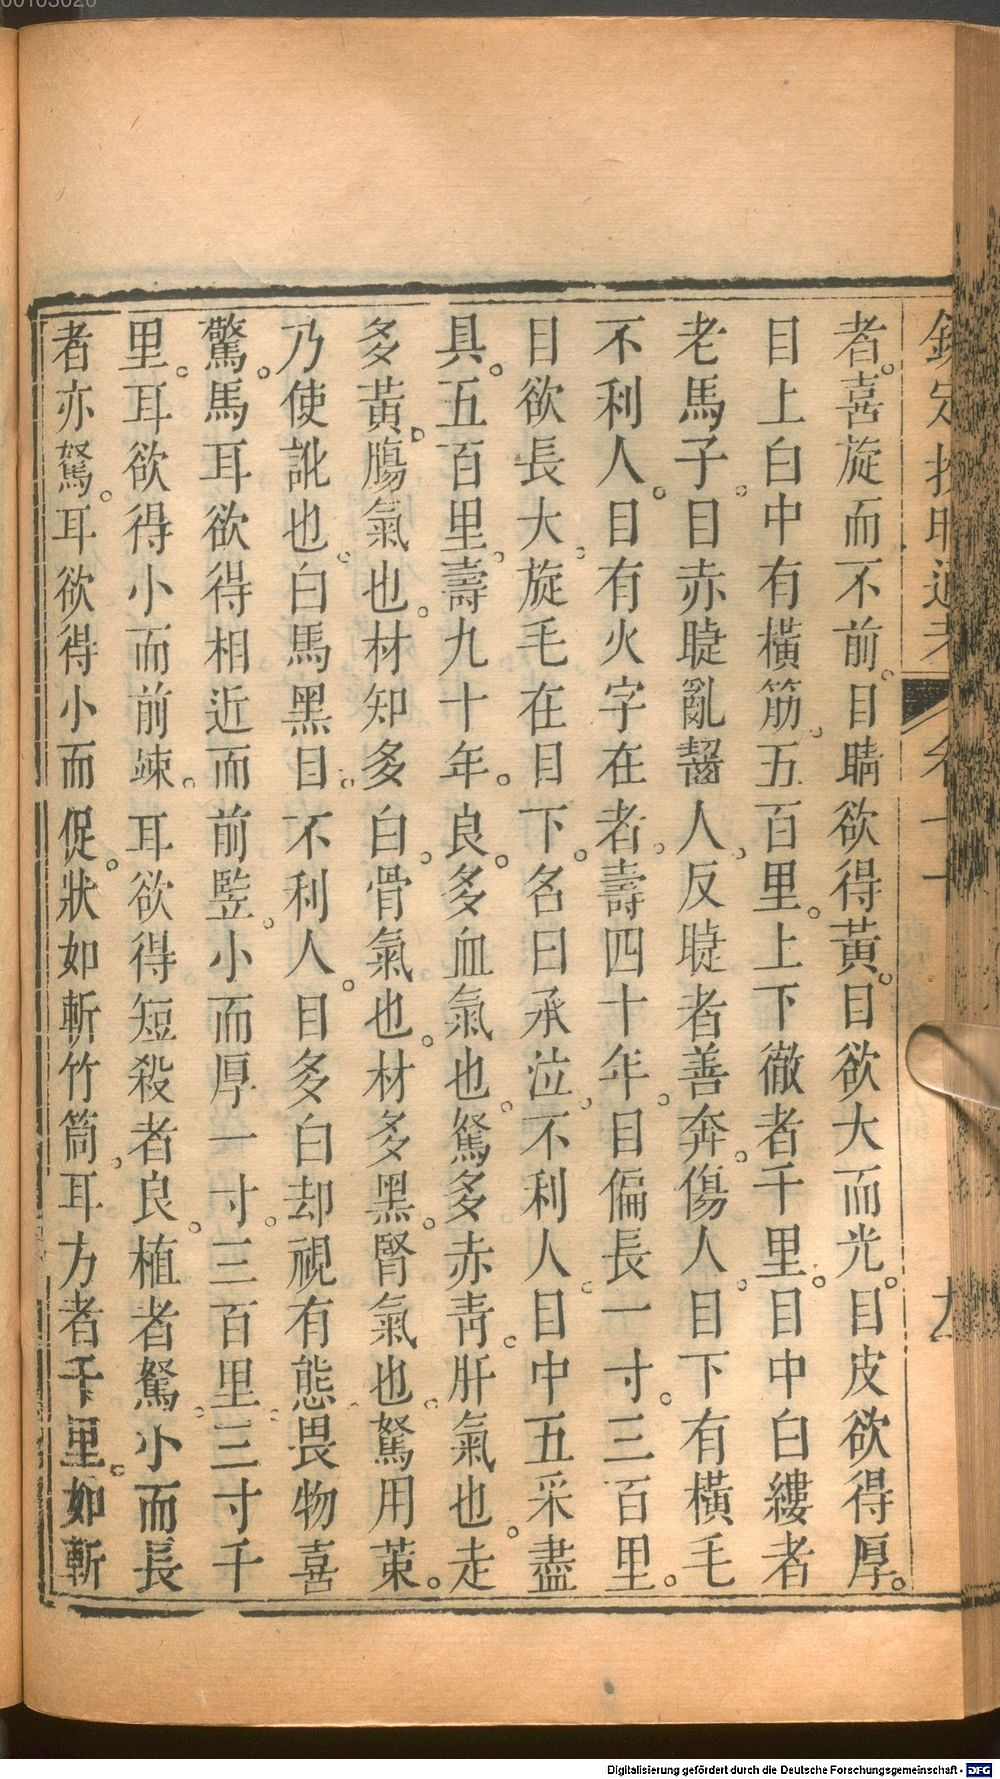 者。喜旋而不前。目睛欲得黃。目欲大而光。目皮欲得厚。
目上白中有橫筋。五百里。上下徹者千里。目中白縷者
老馬子。目赤睫亂齧人。反睫者善奔。傷人。目下有橫毛
不利人。目有火字在者。壽四十年。目偏長一寸。三百里。
目欲長大。旋毛在目下。名曰承泣。不利人。目中五采盡
具。五百里。壽九十年。良。多血氣也。駑多赤青。肝氣也。走
多黃。腸氣也。材知多白。骨氣也。材多黑。腎氣也。駑用策。
乃使訛也。白馬黑目。不利人。目多白却視有態畏物喜
驚。馬耳欲得相近而前豎。小而厚一寸。三百里。三寸千
里。耳欲得小而前竦。耳欲得短殺者良。植者駑。小而長
者亦駑。耳欲得小而促。狀如斬竹筒。耳方者千里。如斬
欽定授時通考
九
00103020
Digitalisierung gefördert durch die Deutsche Forschungsgemeinschaft - DFG